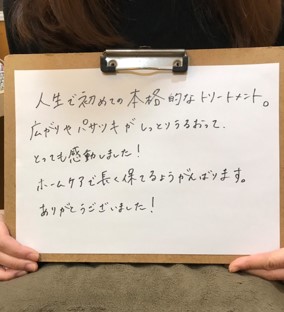 人生で初めての本格的なトリートメント。
広がりやパサツキがしっとりうるおって、
とっても感動しました！
ホームケアで長く保てるようがんばります。
ありがとうございました！